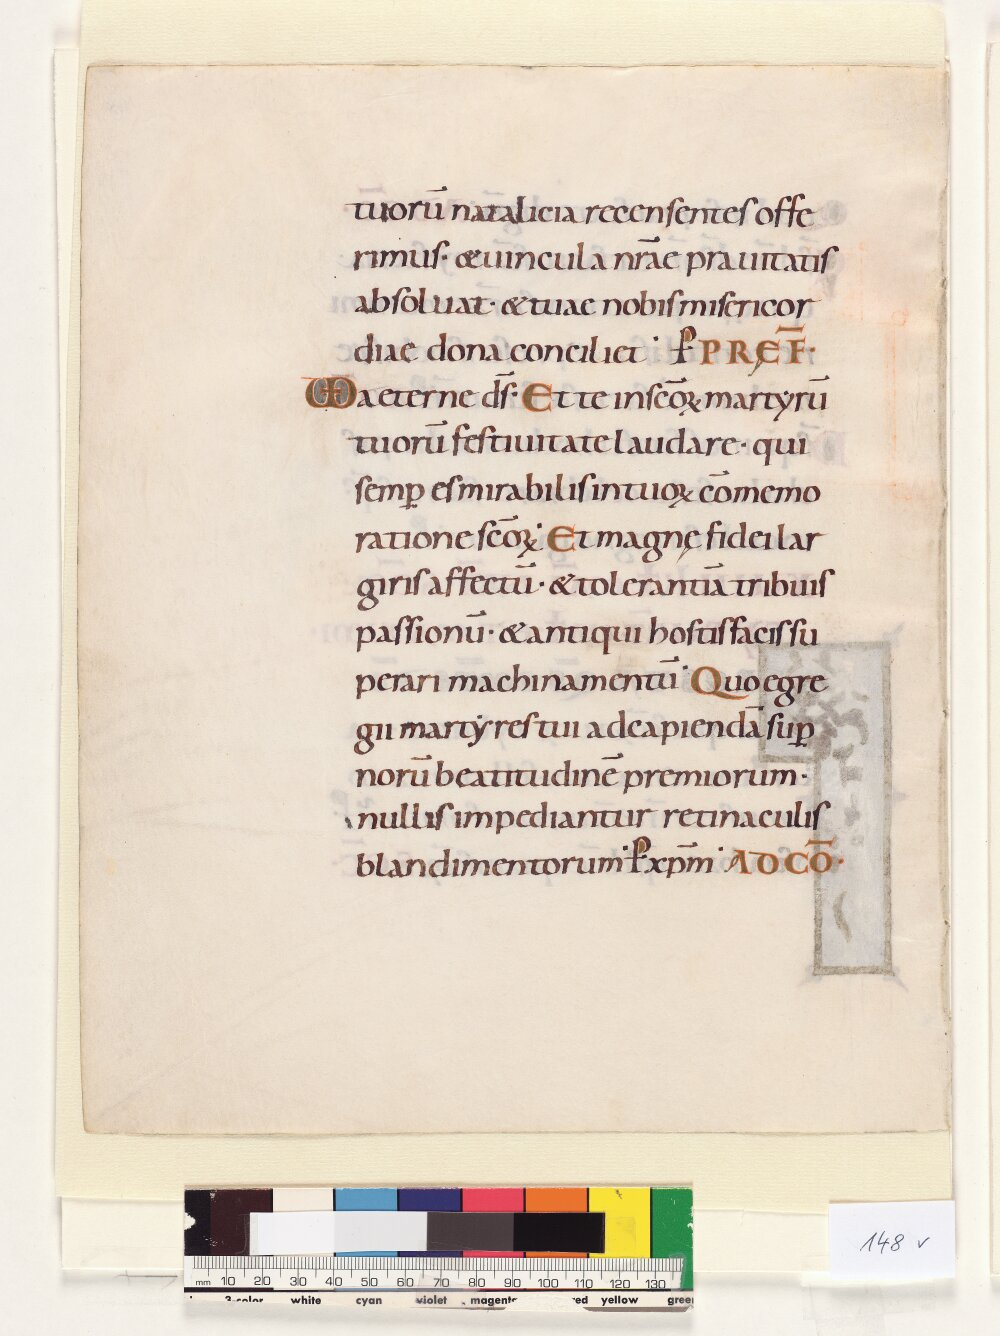 tuorū natalicia recensentes offe
rimus· & uincula nr̄ae prauitatis
absoluat· & tuae nobis misericor
diae dona conciliet· ꝑ PREF̄·
VD aeterne ds̄· Et te in scōꝝ martyrū
tuorū festiuitate laudare· qui
semꝑ es mirabilis in tuoꝝ cōmemo
ratione scōꝝ· Et magnę fidei lar
giris affectū· & tolerantiā tribuis
passionū· & antiqui hostis facis su
perari machinamentū· Quo egre
gii martyres tui ad capiendā suꝑ
norū beatitudinē premiorum·
nullis impediantur retinaculis
blandimentorum· ꝑ xp̄m· AD CŌ·
148 v
mm 10 20 30 40 50 60 70 80 90 100 110 120 130
3-color white cyan violet magenta red yellow green